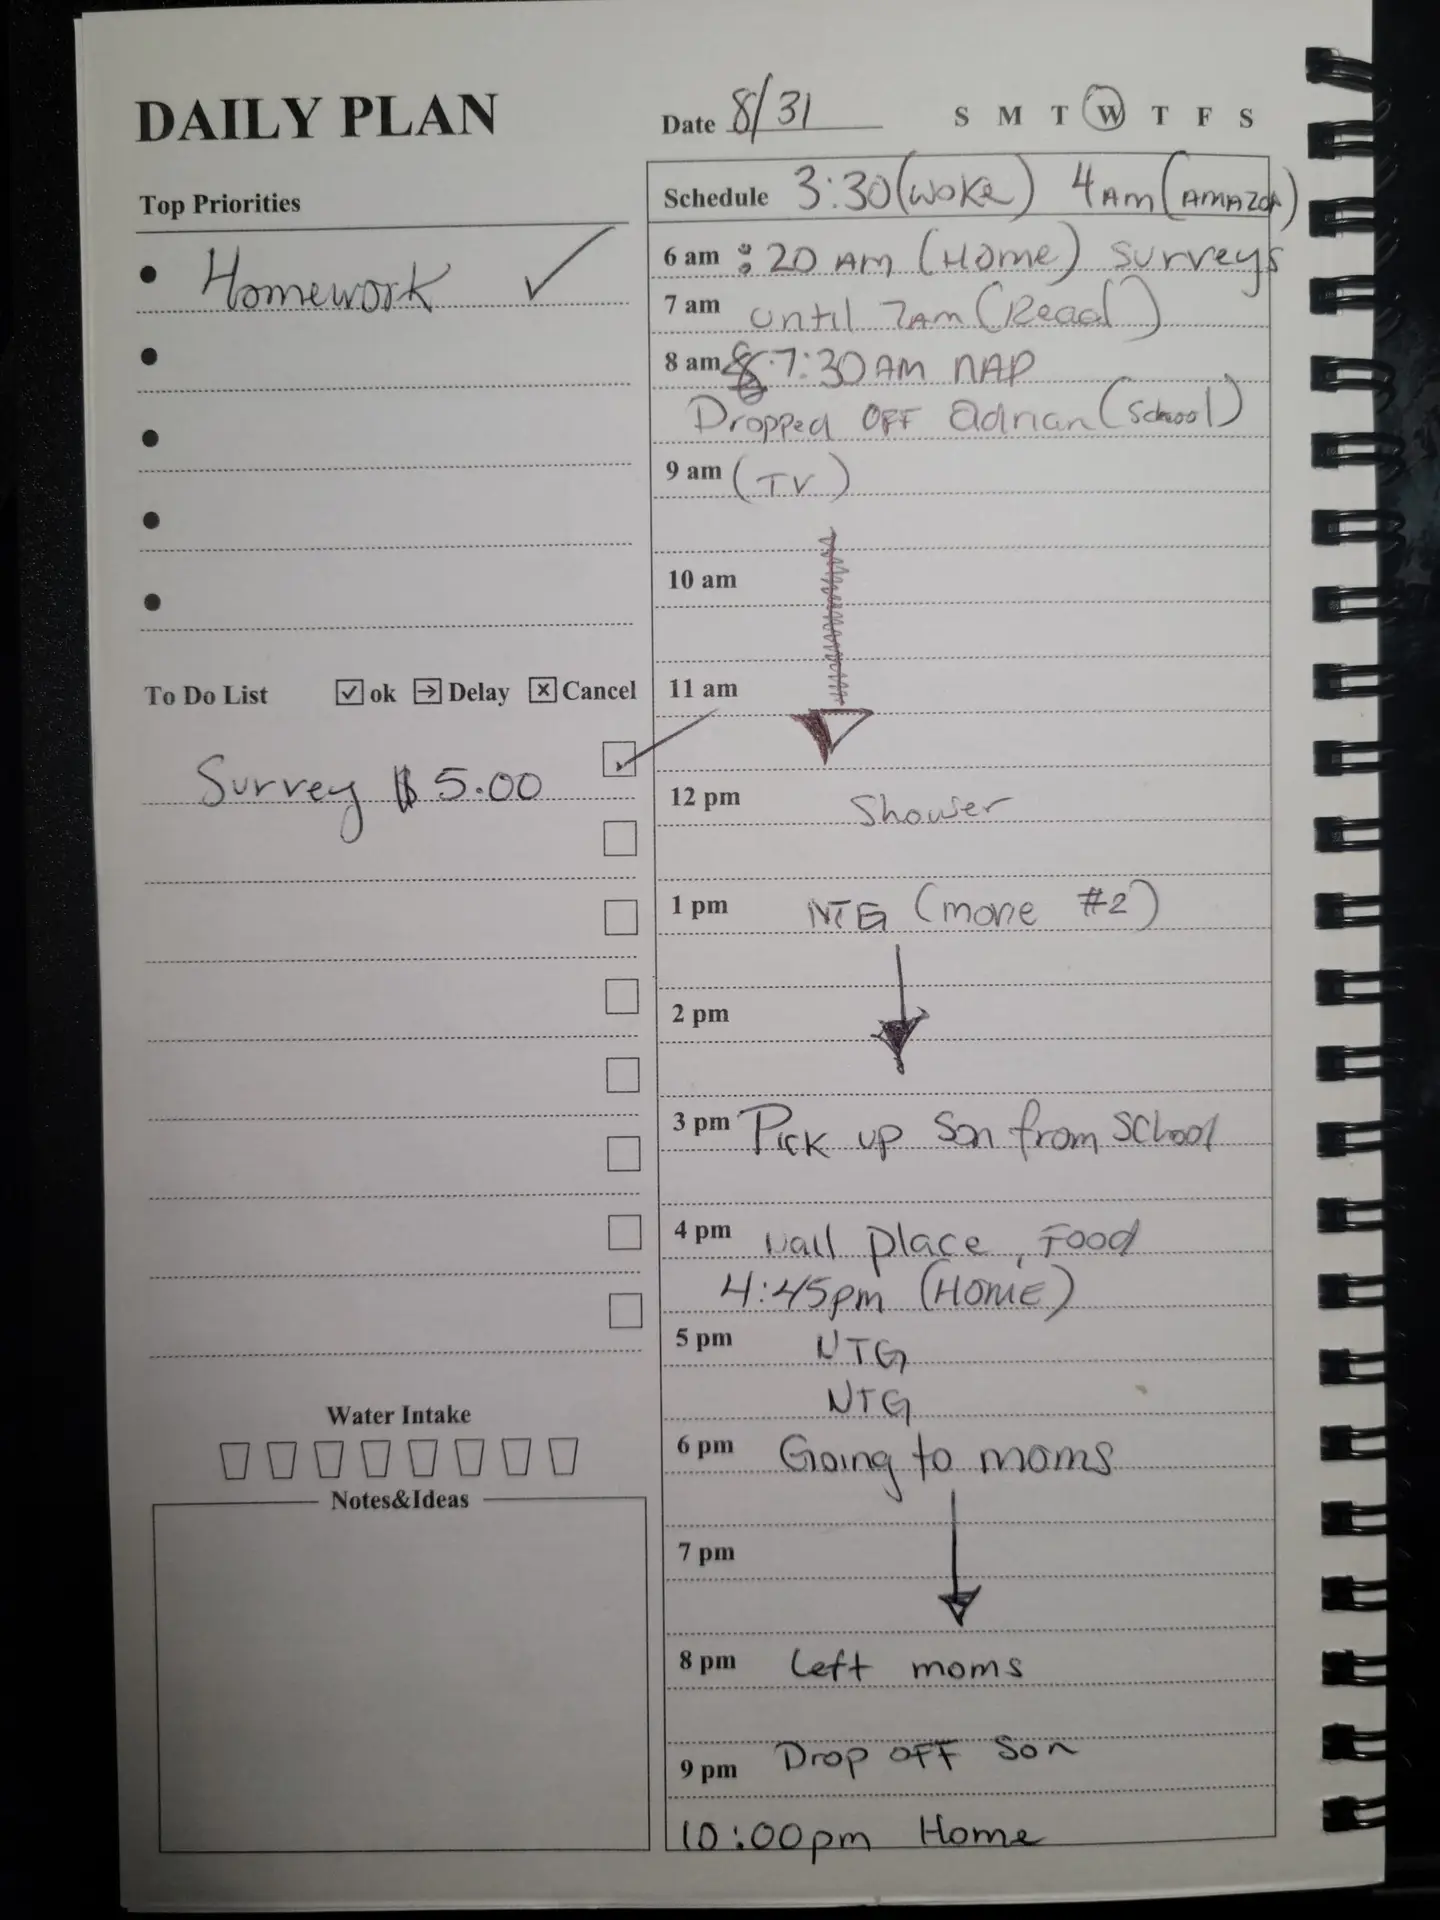 DAILY PLAN
Date 8/31 S M T W T F S
Top Priorities
• Homework ✓
•
•
•
•
To Do List ☑ ok → Delay ☒ Cancel
Survey $5.00
Water Intake
Notes&Ideas
Schedule 3:30 (woke) 4AM (AMAZON)
6 am :20 AM (Home) surveys
7 am until 7AM (Read)
8 am 7:30AM NAP
Dropped OFF adrian (School)
9 am (TV)
10 am
11 am
12 pm Shower
1 pm NTG (#2)
2 pm
3 pm Pick up Son from School
4 pm Nail place, Food
4:45pm (Home)
5 pm NTG
NTG
6 pm Going to moms
7 pm
8 pm Left moms
9 pm Drop off Son
10:00pm Home